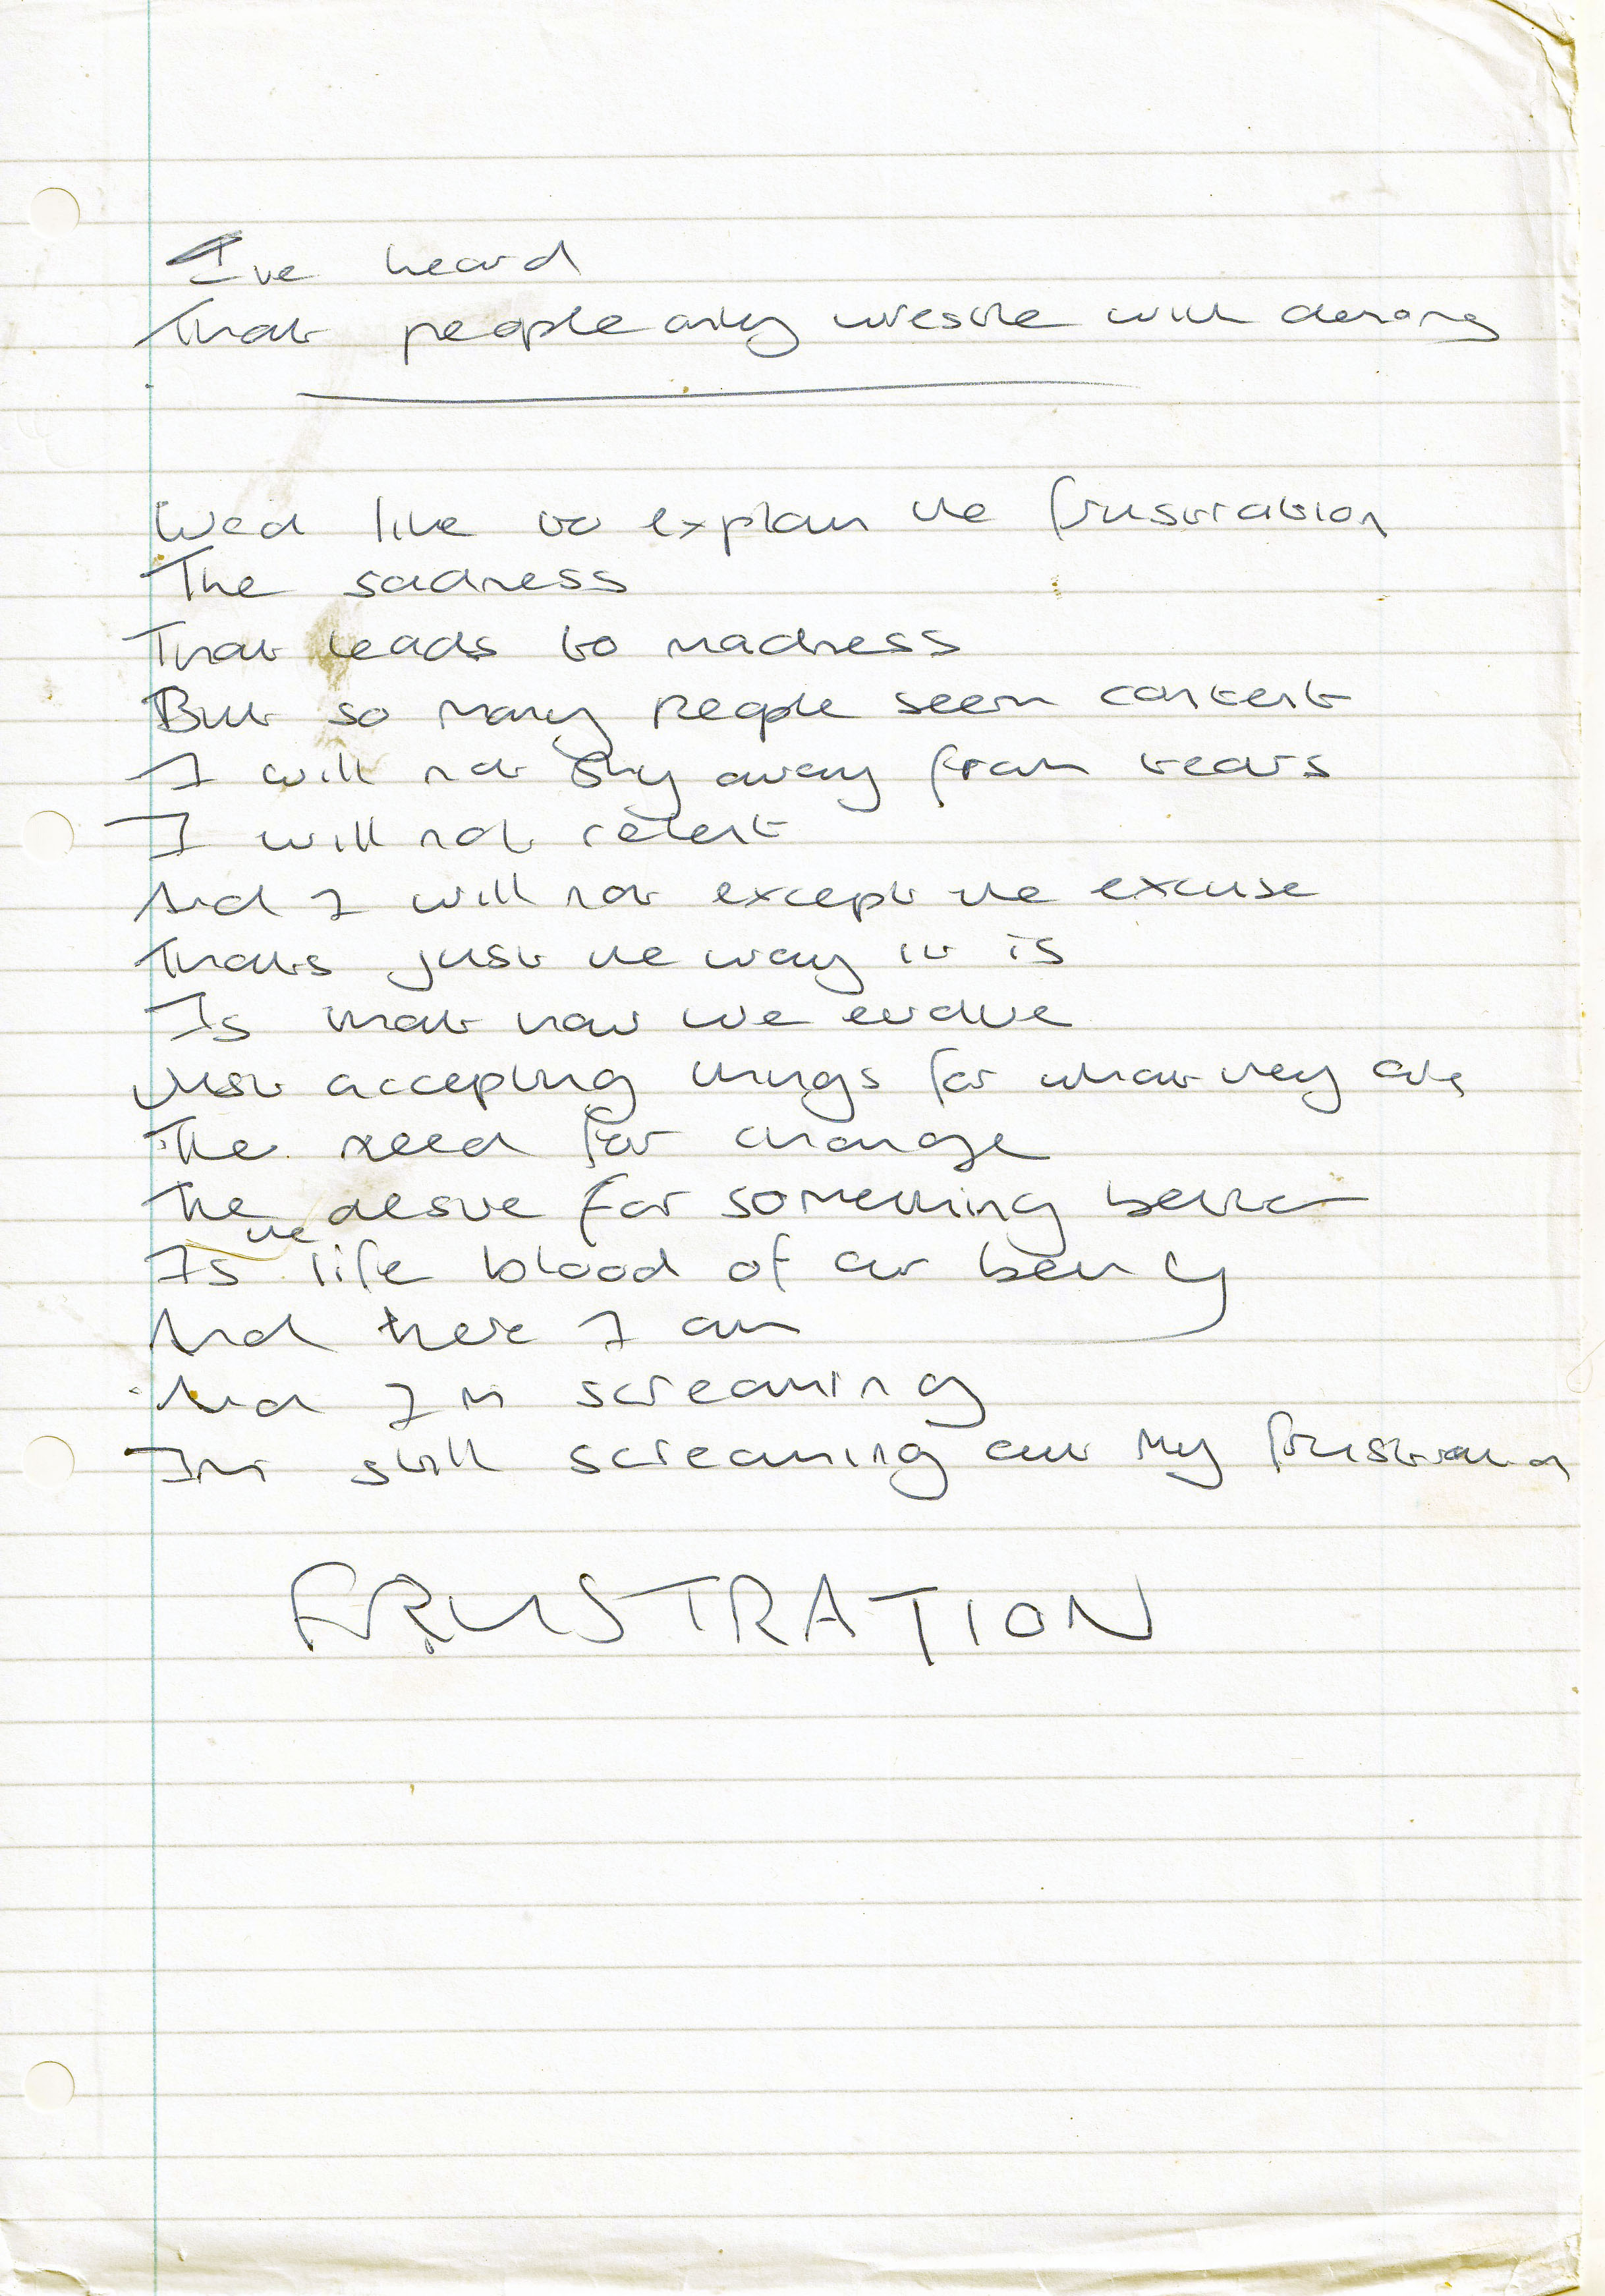 I've heard
That people only wrestle with demons
Wed like to explain the frustration
The sadness
That leads to madness
But so many people seem content
I will not shy away from tears
I will not relent
And I will not except the excuse
Thats just the way it is
Is that how we evolve
Just accepting things for what they are
The need for change
The desire for something better
Is the life blood of our being
And there I am
And Im screaming
Im still screaming out my frustration
FRUSTRATION